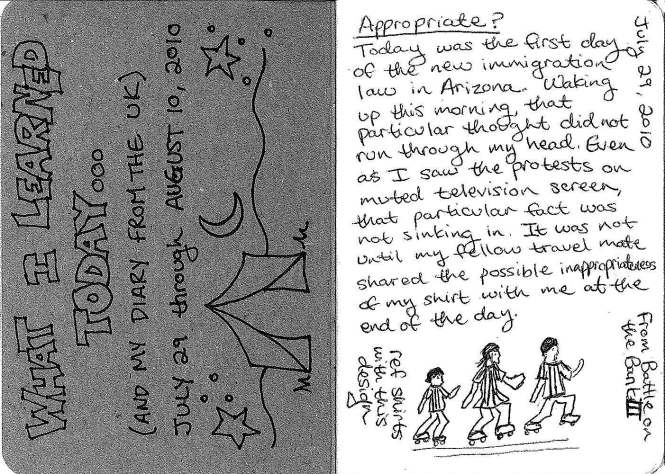 WHAT I LEARNED
TODAY...
(AND MY DIARY FROM THE UK)
JULY 29 through AUGUST 10, 2010
Appropriate?
July 29, 2010
Today was the first day
of the new immigration
law in Arizona. Waking
up this morning, that
particular thought did not
run through my head. Even
as I saw the protests on
muted television screen,
that particular fact was
not sinking in. It was not
until my fellow travel mate
shared the possible inappropriateness
of my shirt with me at the
end of the day.
ref shirts
with this
design
From Battle on
the Bank III